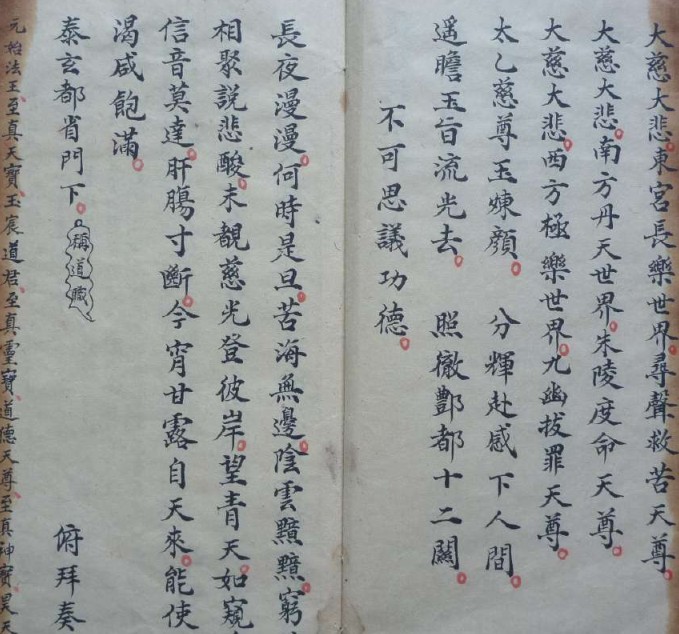 大慈大悲。東宮長樂世界。尋聲救苦天尊。
大慈大悲。南方丹天世界。朱陵度命天尊。
大慈大悲。西方極樂世界。九幽拔罪天尊。
太乙慈尊玉煉顏。 分輝赴感下人間。
遥瞻玉旨流光去。 照徹酆都十二關。
不可思議功德。
長夜漫漫。何時是旦。苦海無邊。陰雲黯黯。窮
相聚說悲酸。未覩慈光登彼岸。望青天。如窺
信音莫達。肝腸寸斷。今宵甘露自天來。能使
渴咸飽滿。
泰玄都省門下。稱道職 俯拜奏
元始法王。至真天寶。玉宸道君。至真靈寶。道德天尊。至真神寶。昊天